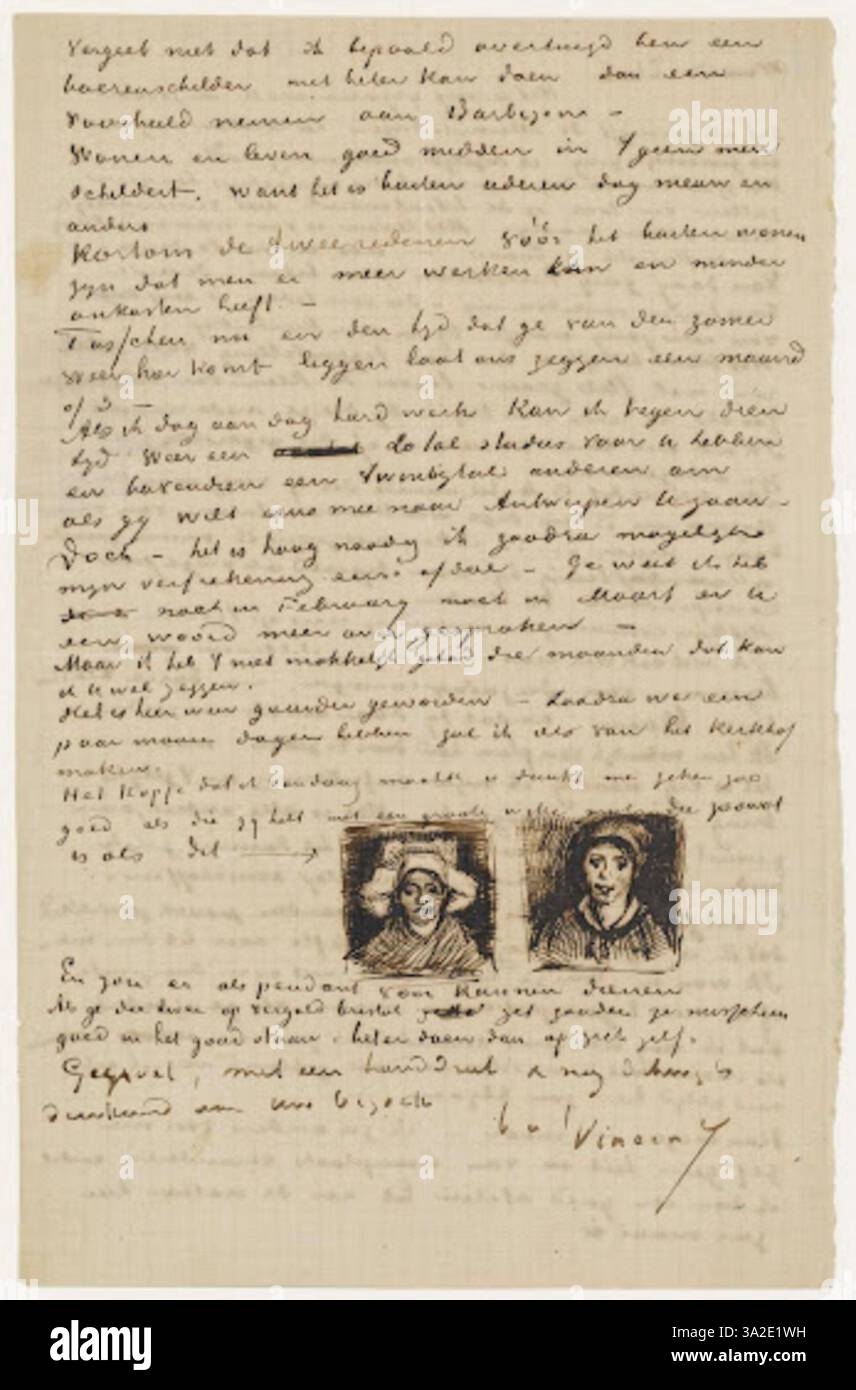 Vergeet niet dat ik bepaald overtuigd ben een
boerenschilder niet beter kan doen dan een
voorbeeld nemen aan Barbizon –
Wonen en leven goed midden in 't geen men
schildert. want het is buiten iederen dag nieuw en
anders
Kortom de twee redenen vóór het buiten wonen
zyn dat men er meer werken kan en minder
onkosten heeft. –
Tusschen nu en den tyd dat ge van den zomer
weer hier komt liggen laat ons zeggen een maand
of 3 –
Als ik dag aan dag hard werk kan ik tegen dien
tyd weer een 20 tal studies voor U hebben
en bovendien een twintigtal anderen om
als gy wilt eens mee naar Antwerpen te gaan –
Doch – het is hoog noodig ik zoodra mogelyk
myn verfrekening eens afdoe – Ge weet ik heb
noch in February noch in Maart er U
een woord meer over gesproken –
Maar ik heb 't niet makkelyk gehad die maanden dat kan
ik U wel zeggen.
Het is hier weer guurder geworden – Zoodra we een
paar mooie dagen hebben zal ik iets van het Kerkhof
maken.
Het Kopje dat ik vandaag maakte U dunkt me zeker zoo
goed als die gy hebt met een groote witte muts die zoowat
is als dit
En zou er als pendant voor Kunnen dienen
Als ge die twee op verguld bristol zet zouden ze misschien
goed in het goud staan. beter doen dan op zich zelf.
Gegroet, met een handdruk & nog dikwyls
denkend aan Uw bezoek
b. à t.
Vincent
alamy
Image ID: 3A2E1WH
www.alamy.com